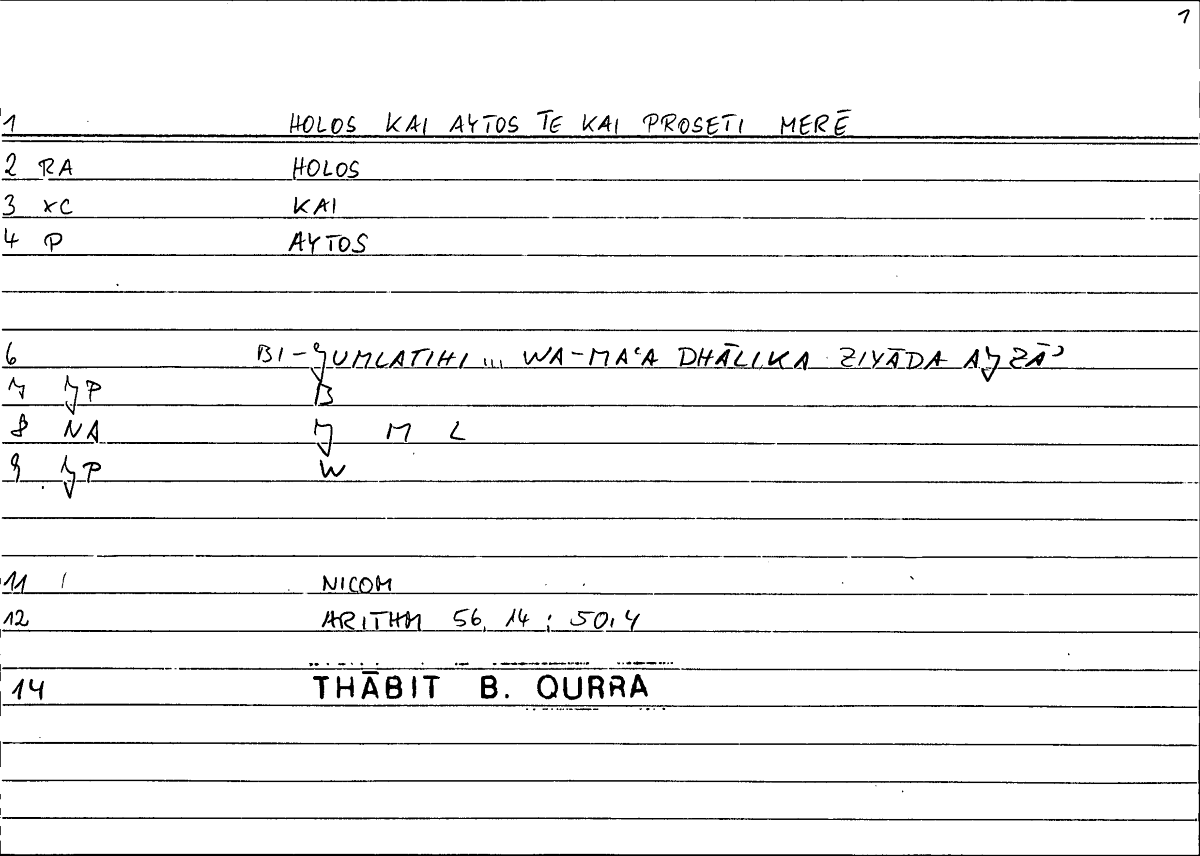 1
1 HOLOS KAI AYTOS TE KAI PROSETI MERĒ
2 RA HOLOS
3 XC KAI
4 P AYTOS
6 BI-ǧUMLATIHI ... WA-MAʿA DHĀLIKA ZIYĀDA AǧZĀʾ
7 ǧP B
8 NA ǧ M L
9 ǧP W
11 NICOM
12 ARITHM 56, 14 ; 50,4
14 THĀBIT B. QURRA